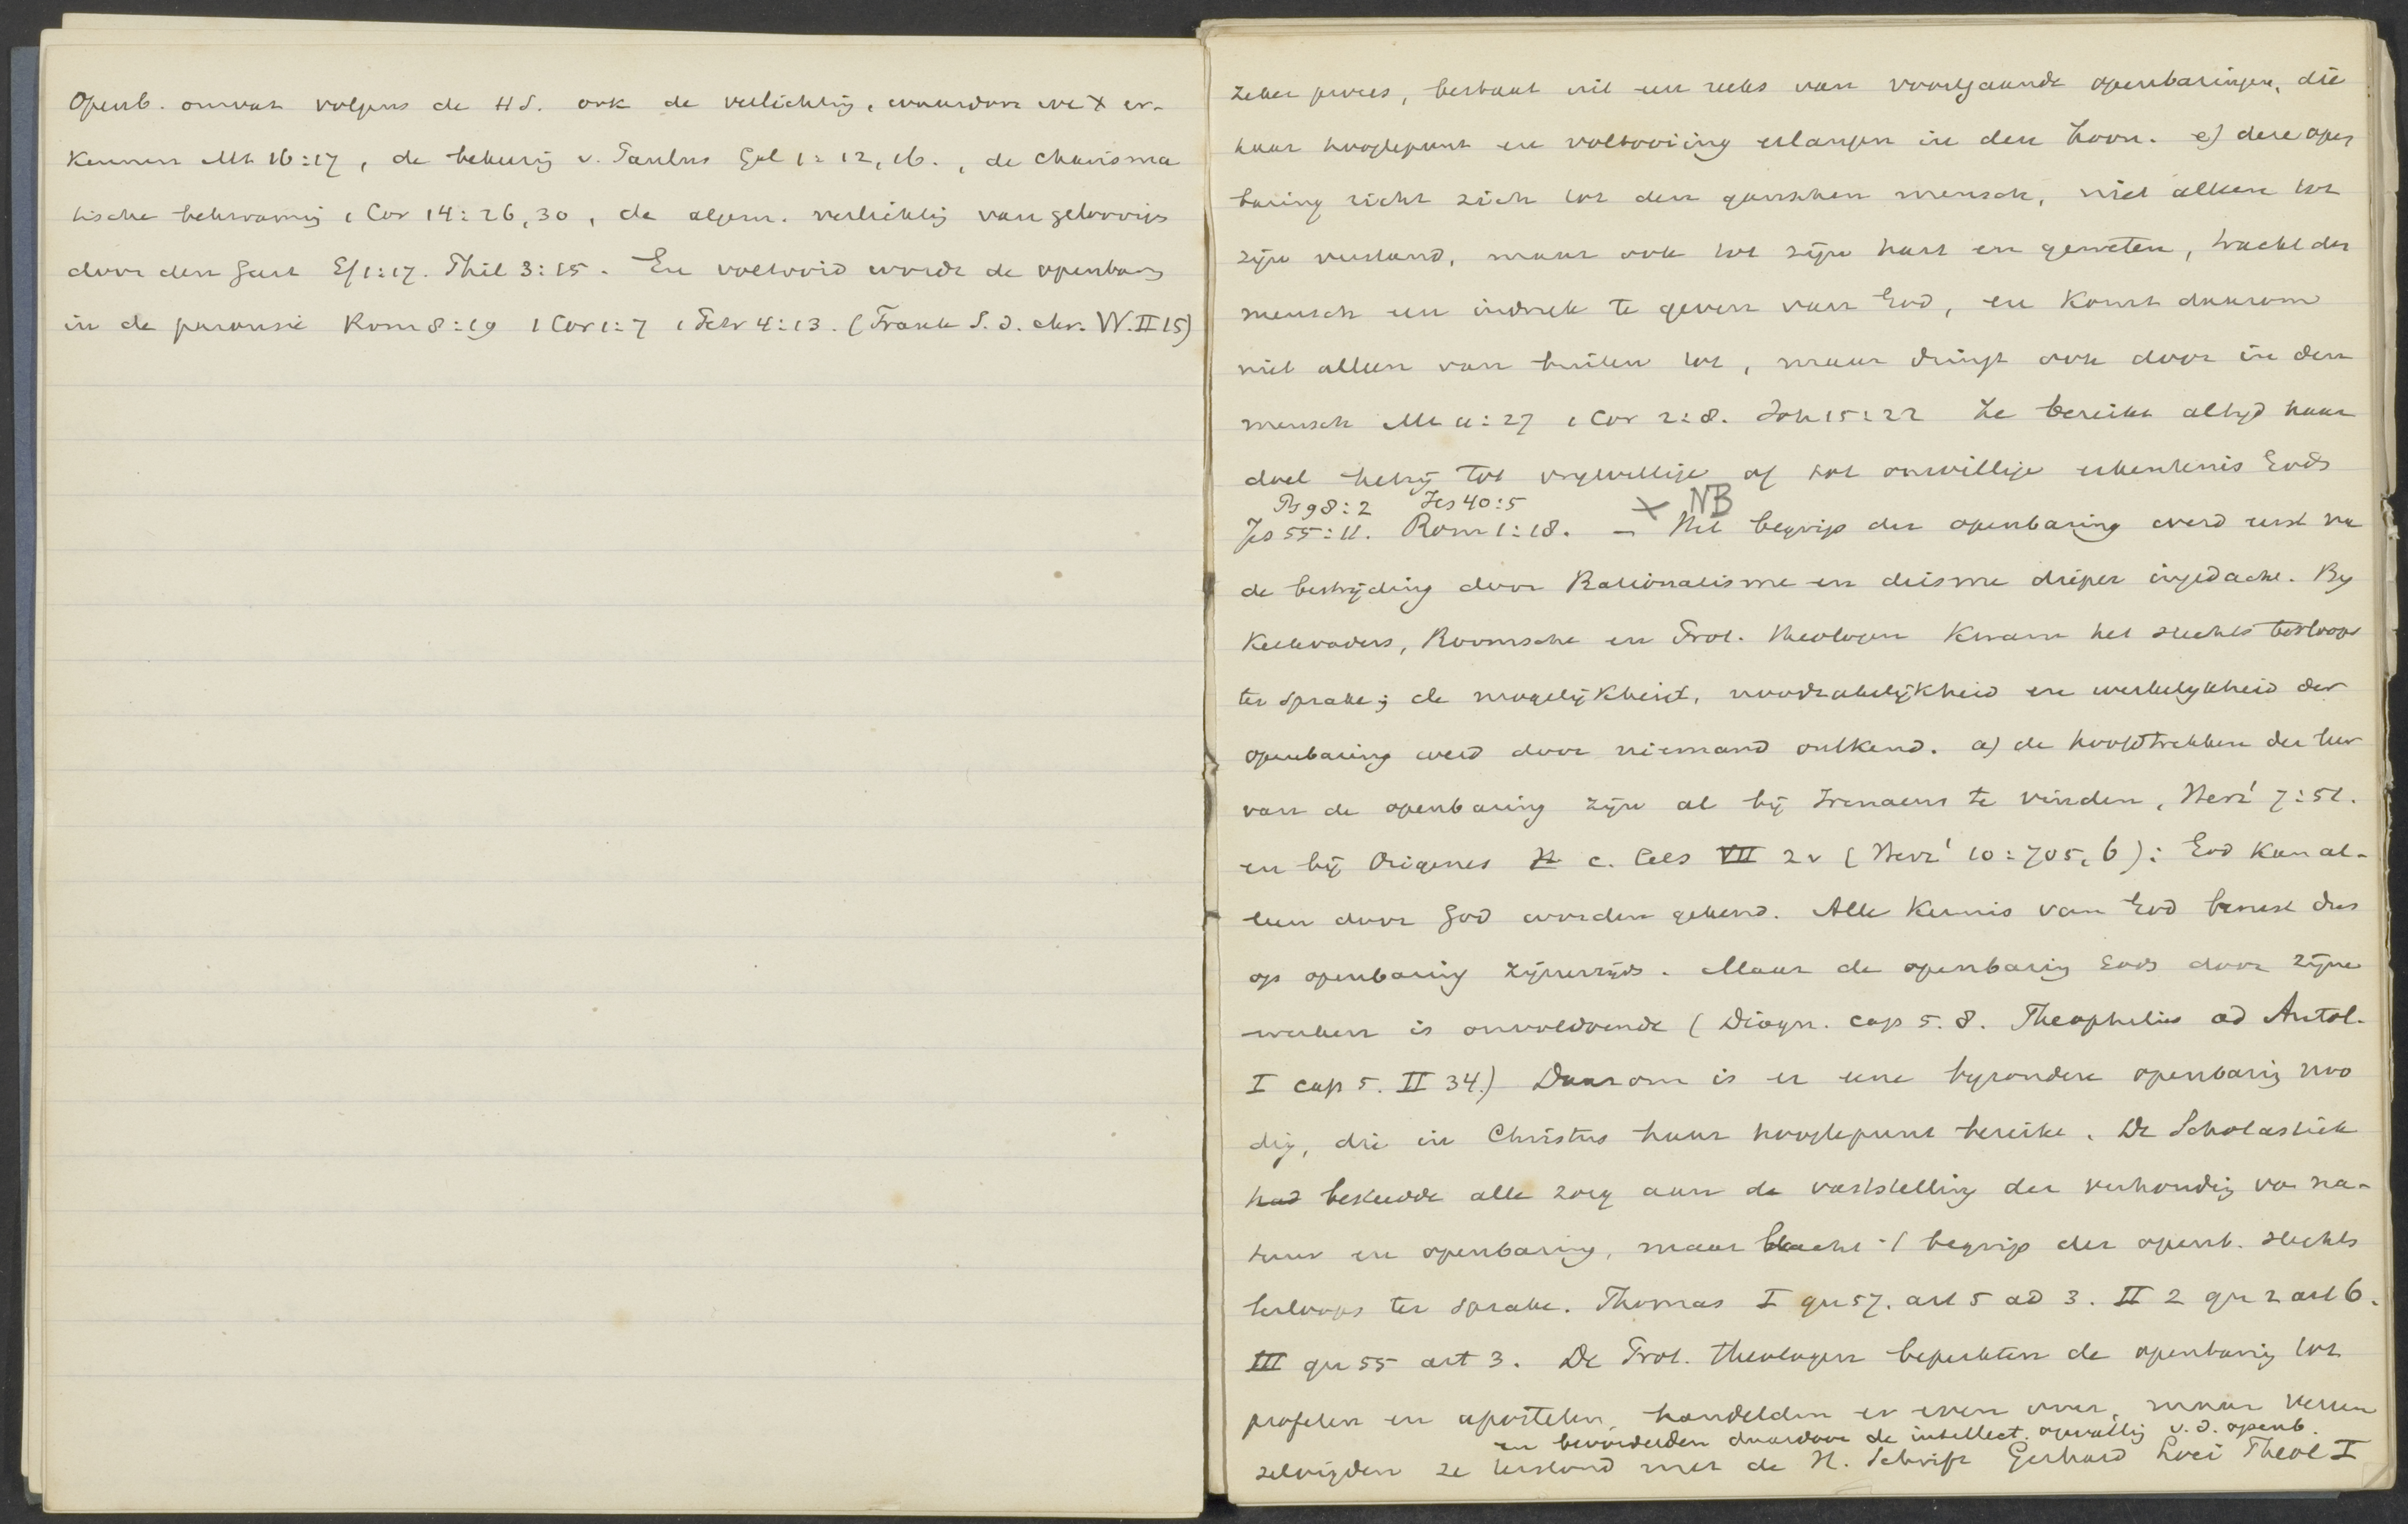 Openb. omvat volgens de HS. ook de verlichting, waardoor we X er-
kennen Mt 16:17, de bekeering v. Paulus Gal 1:12,16., de charisma
tische bekwaming 1 Cor 14:26,30, de algem. verlichtig van geloovigen
door den Geest Ef 1:17. Phil 3:15. En voltooid wordt de openbarg
in de parousie Rom 8:19 1 Cor 1:7 1 Petr 4:13. (Frank S. d. chr. W. II 15)
zeker proces, bestaat uit een reeks van voorafgaande openbaringen, die
haar hoogtepunt en voltooiing erlangen in den Zoon. e) deze open
baring richt zich tot den ganschen mensch, niet alleen tot
zijn verstand, maar ook tot zijn hart en geweten, tracht den
mensch een indruk te geven van God, en komt daarom
niet alleen van buiten tot, maar dringt ook door in den
mensch Mt 11:27 1 Cor 2:8. Joh 15:22 Ze bereikt altijd haar
doel hetzij tot vrijwillige of tot onwillige erkentenis Gods
Ps 98:2 Jes 40:5 X NB
Jes 55:11. Rom 1:18. – Het begrip der openbaring werd eerst na
de bestrijding door Rationalisme en deisme dieper ingedacht. By
Kerkvaders, Roomsche en Prot. theologen kwam het slechts terloops
ter sprake; de mogelijkheid, noodzakelijkheid en werkelykheid der
openbaring werd door niemand ontkend. a) de hoofdtrekken der leer
van de openbaring zijn al bij Irenaeus te vinden, Herz' 7:51.
en bij Origenes c. Cels VII 2v (Herz' 10:705,6): God kan al-
leen door God worden gekend. Alle kennis van God berust dus
op openbaring zijnerzijds. Maar de openbaring Gods door zijne
werken is onvoldoende (Diogn. cap 5.8. Theophilus ad Autol.
I cap 5. II 34.) Daarom is er eene byzondere openbaring noo
dig, die in Christus haar hoogtepunt bereikt. De Scholastiek
had besteedde alle zorg aan de vaststelling der verhoudig van na-
tuur en openbaring, maar bracht 't begrip der openb. slechts
terloops ter sprake. Thomas I qu 57. art 5 ad 3. II 2 qu 2 art 6.
III qu 55 art 3. De Prot. theologen beperkten de openbaring tot
profeten en apostelen, handelden er even over, maar vereen
en bevorderden daardoor de intellect. opvattig v. d. openb.
zelvigden ze terstond met de H. Schrift Gerhard Loci Theol I